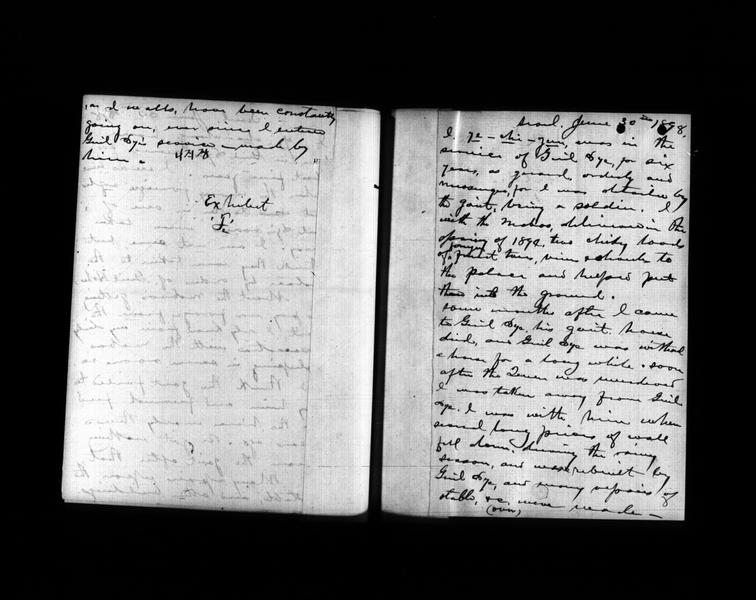 and walls, have been constantly
going on, ever since I entered
Genl Dye's service — made by
him.
Exhibit
"F"
Seoul. June 30th 1898
I, Ye-chi-yun, was in the
service of Genl Dye, for six
years, as guard orderly and
messenger, for I was obtained by
the govt, being a soldier. I
with the mafoo, delivered in the
spring of 1892, two chicky loads
of foreign fruit trees, vines &
the palace and helped put
them into the ground.
some months after I came
to Genl Dye, his govt. horse
died, and Genl Dye was without
a horse for a long while. soon
after the Queen was murdered
I was taken away from Genl
Dye. I was with him when
several long pieces of wall
fell down, during the rainy
season, and were rebuilt by
Genl Dye, and many repairs of
stable, &c were made —
(over)